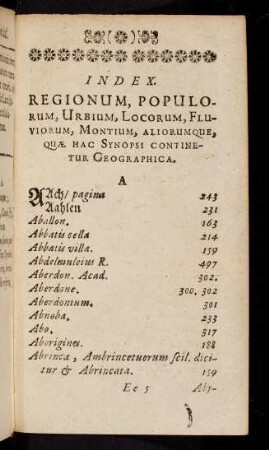 INDEX.
REGIONUM, POPULO-
RUM, URBIUM, LOCORUM, FLU-
VIORUM, MONTIUM, ALIORUMQUE,
QUÆ HAC SYNOPSI CONTINE-
TUR GEOGRAPHICA.
A
AAch/ pagina 243
Aahlen 231
Aballon. 163
Abbatis cella 214
Abbatis villa. 159
Abdelmuleius R. 497
Aberdon. Acad. 302.
Aberdone. 300. 302
Aberdonium. 301
Abnoba. 233
Abo. 317
Aborigines. 188
Abrinca, Ambrincetuorum scil. dici-
tur & Abrincata. 159
Ee 5 Abr-